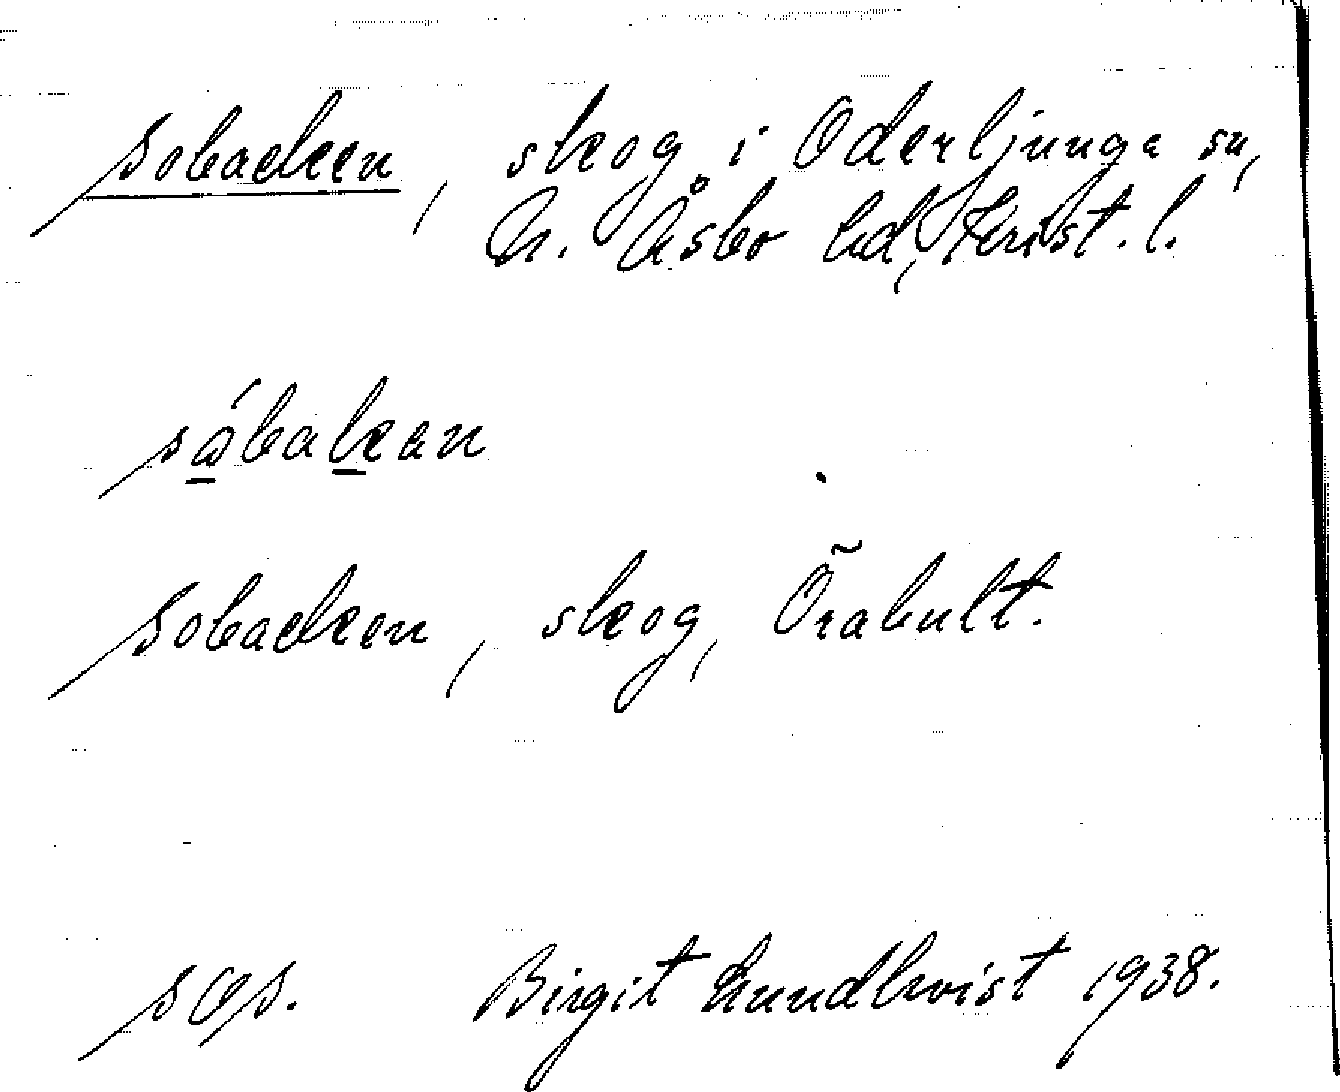 Sobacken, skog i Oderljunga sn,
N. Åsbo hd, Krist. l.
Sobacken, skog, Örahult.
Birgit Lundkvist 1938.